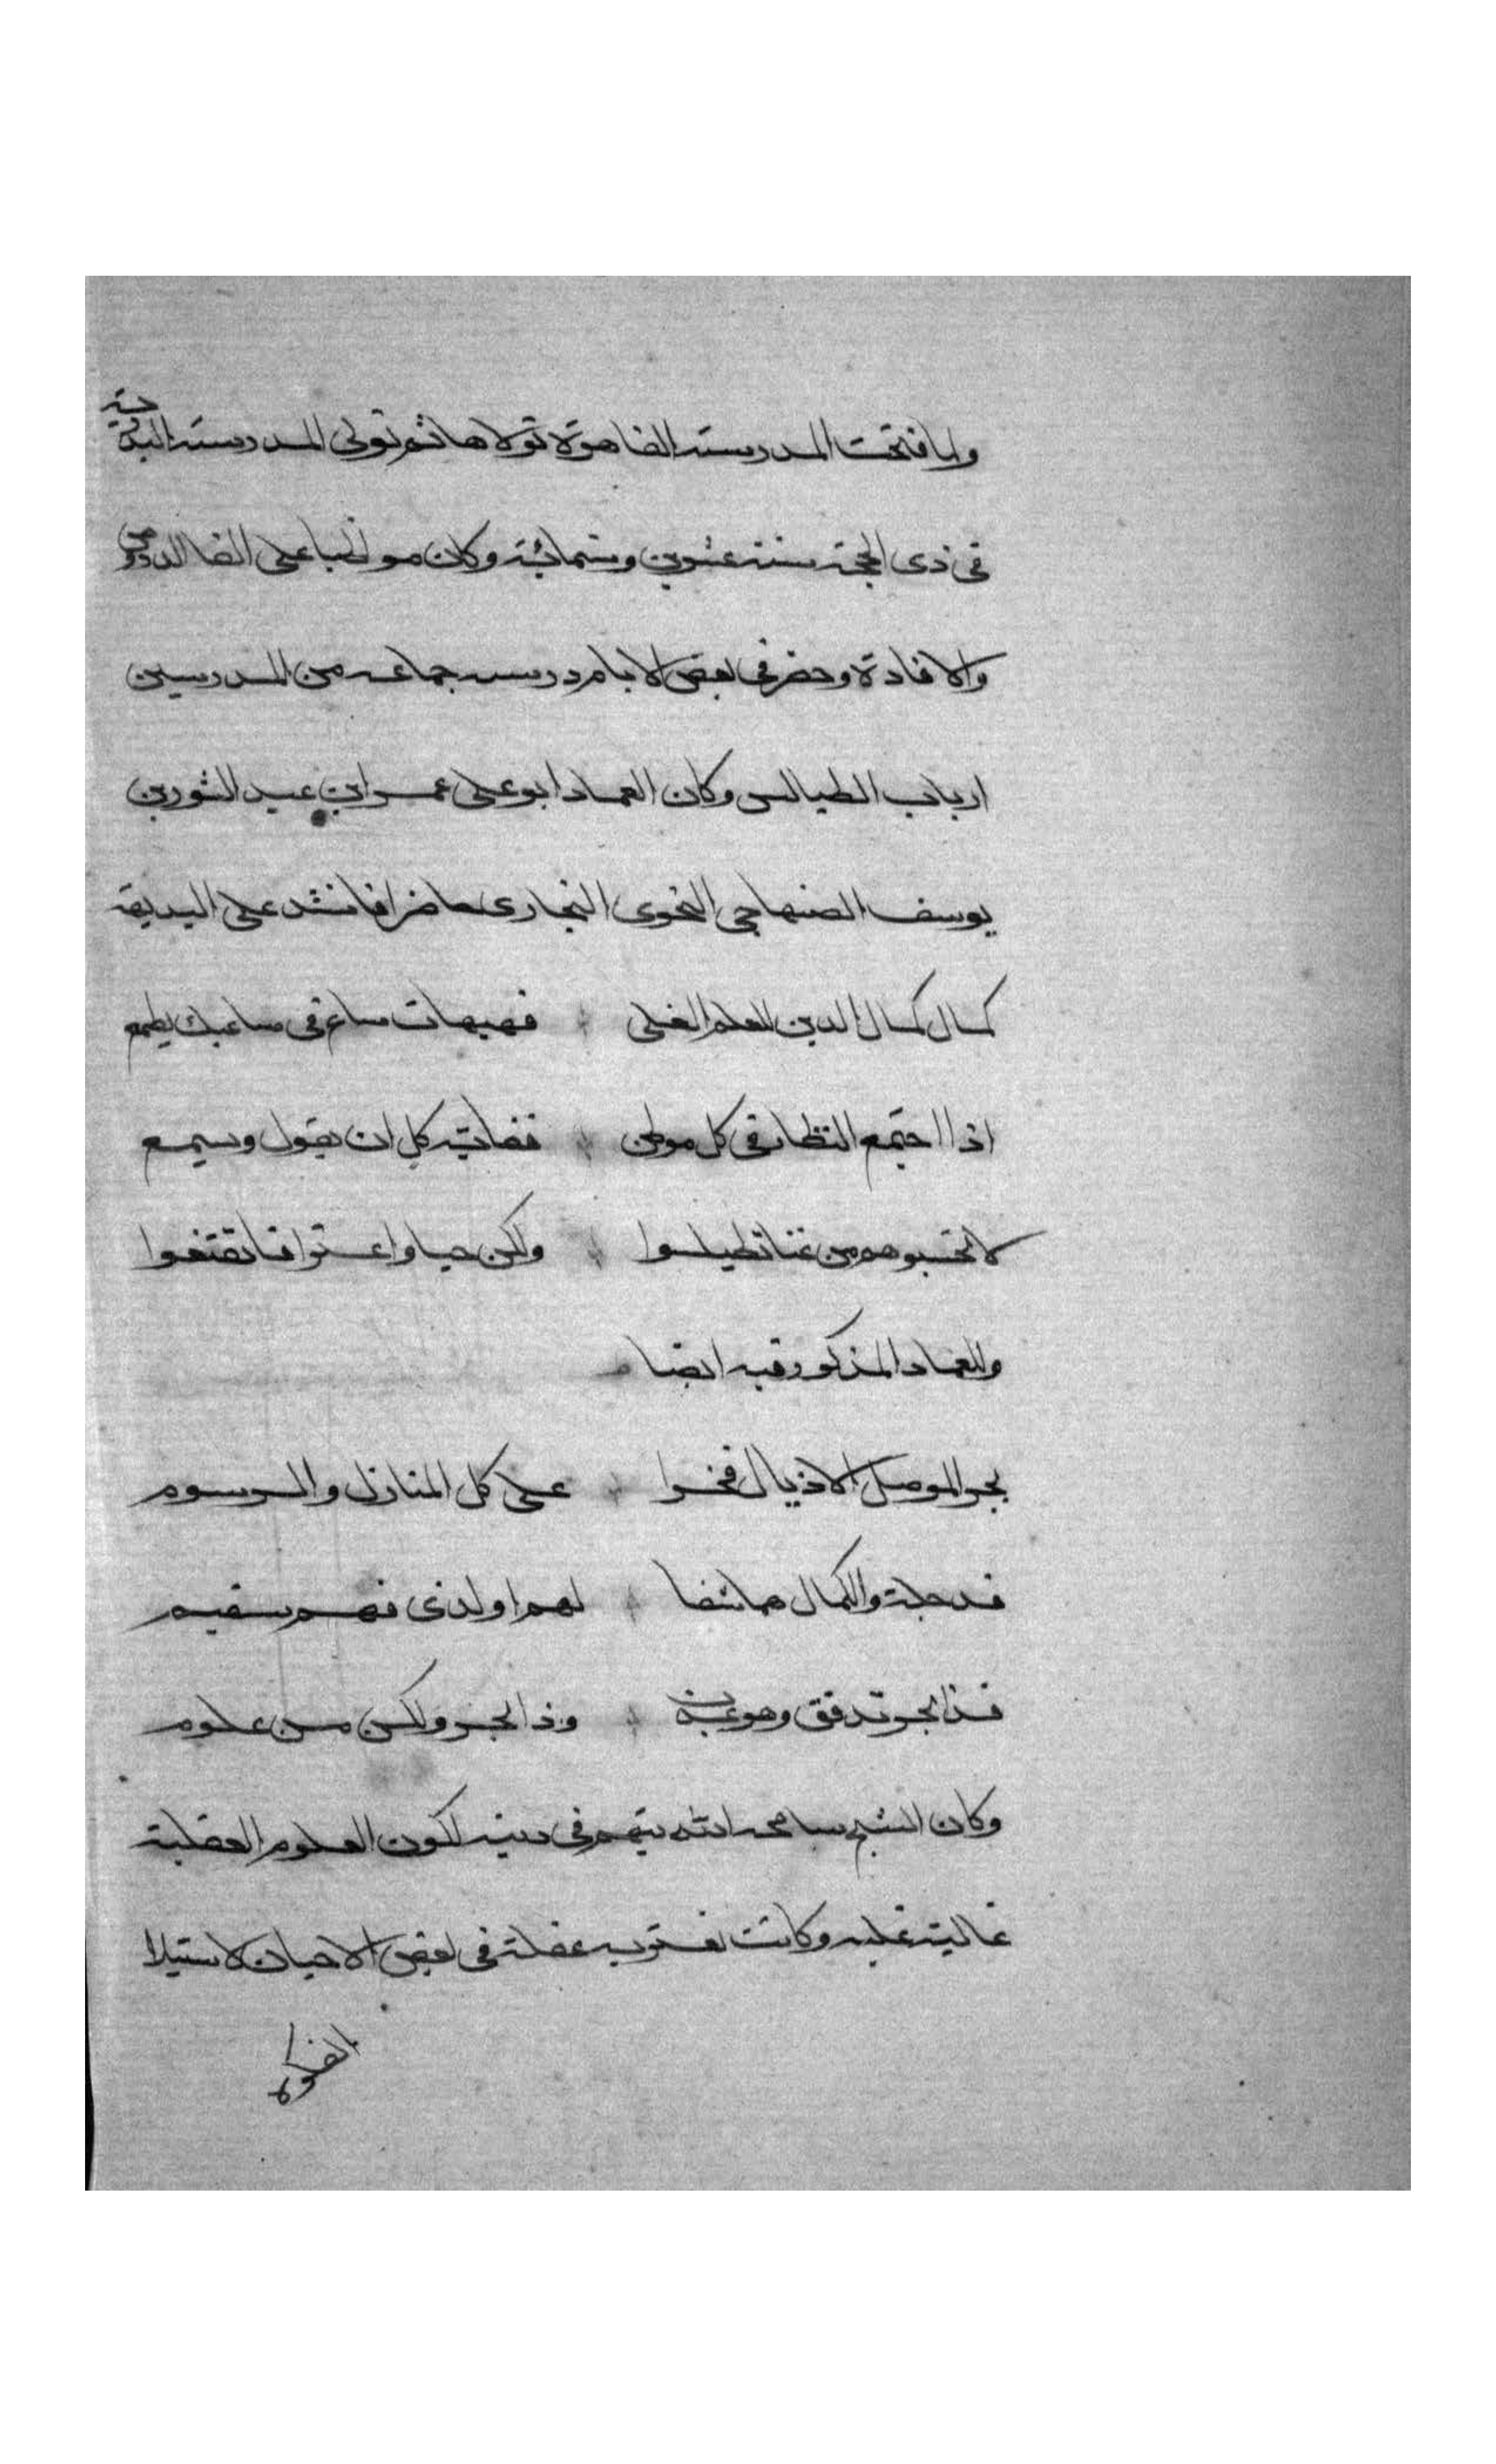 ولما فتحت المدرسة القاهرة تولاها ثم تولى المدرسة البدرية
فى ذى الحجة سنة عشرين وستمائة وكان مواظبا على القا الدروس
والافادة وحضر فى بعض الايام درسه جماعه من المدرسين
ارباب الطيالس وكان العماد ابو على عمر ابن عبد النور بن
يوسف الصنهاجى النحوى البخارى حاضرا فانشد على البديهة
كمال كمال الدين للعلم العلى فهيهات ساع فى مساعيك يطمع
اذا اجتمع النظار فى كل موطن فغاية كل ان يقول ويسمع
لا تحسبوهم من غنا تطيلسوا ولكن حيا واعترافا تقنعوا
وللعماد المذكور فيه ايضا
بجر الموصل الاذيال فخرا على كل المنازل والرسوم
فدجلة والكمال هما شفا لهم او لذى فهم سقيم
فذا بحر تدفق وهو عذب وذا بحر ولكن من علوم
وكان الشيخ سامحه الله يتهم فى دينه لكون العلوم العقلية
غالبة عليه وكانت تعتريه غفلة فى بعض الاحيان لاستيلا
الفكرة